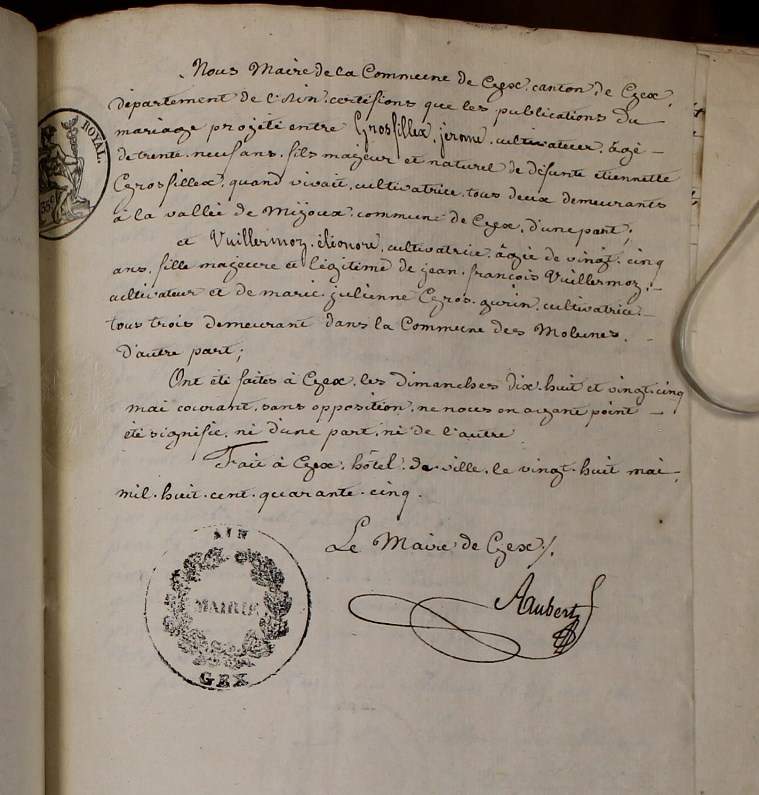 Nous Maire de la Commune de Gex, canton de Gex,
département de l'Ain, certifions que les publications du
mariage projeté entre Grosfillex, jerome, cultivateur, âgé
de trente-neuf ans, fils majeur et naturel de défunte étiennette
Grosfillex, quand vivait, cultivatrice, tous deux demeurants
à la vallée de Mijoux, commune de Gex, d'une part;
et Vuillermoz, éléonore, cultivatrice, âgée de vingt-cinq
ans, fille majeure et légitime de jean-françois Vuillermoz,
cultivateur et de marie-julienne Gros-gurin, cultivatrice
tous trois demeurant dans la Commune des Molunes,
d'autre part;
Ont été faites à Gex, les dimanches dix-huit et vingt-cinq
mai courant, sans opposition, ne nous en ayant point
été signifié, ni d'une part, ni de l'autre.
Fait à Gex, hôtel-de-ville, le vingt-huit mai,
mil-huit-cent-quarante-cinq.
Le Maire de Gex,
Aubert
ROYAL.
35c
AIN
MAIRIE
GEX